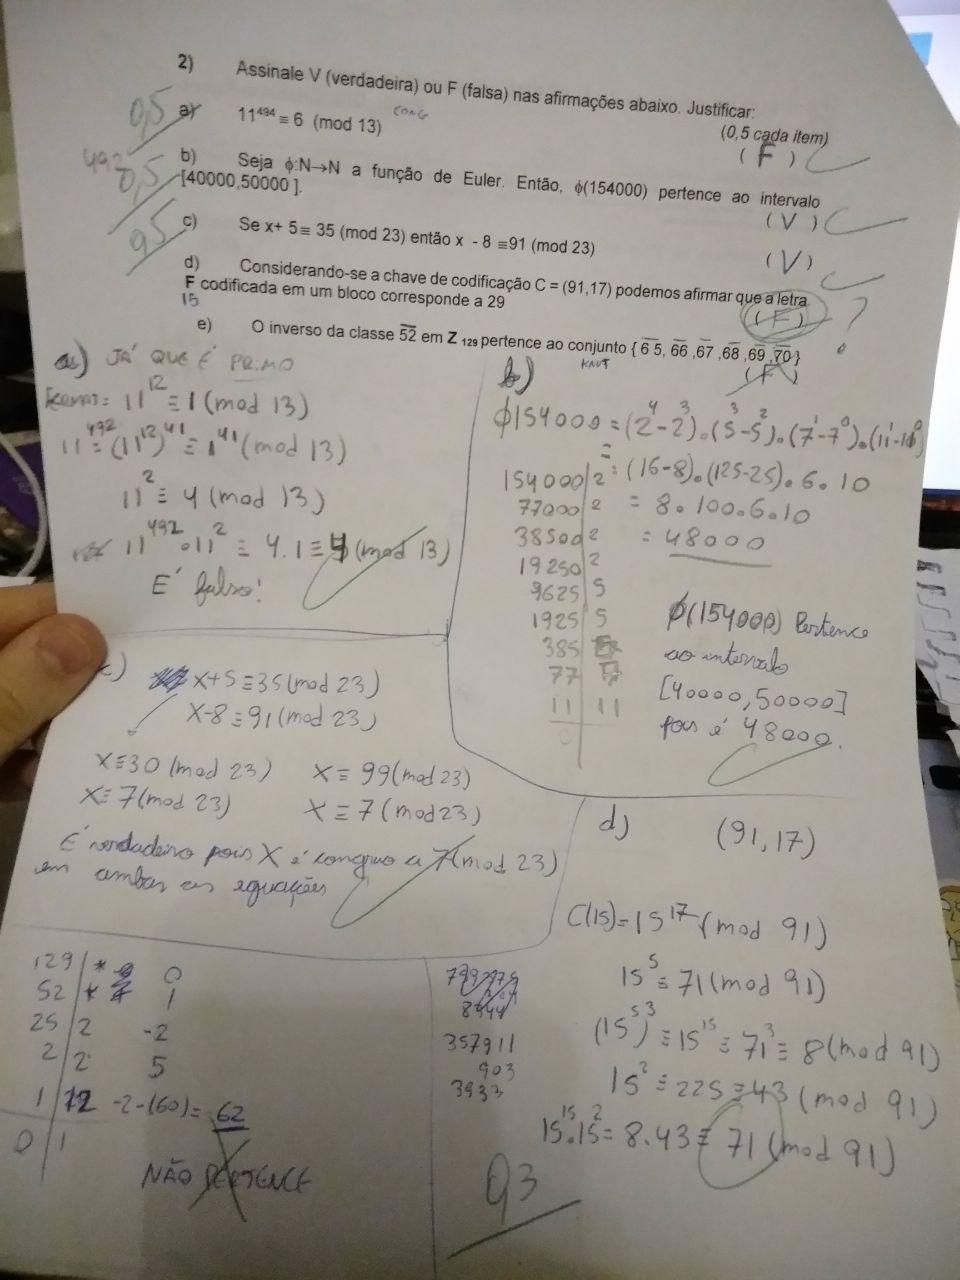 2) Assinale V (verdadeira) ou F (falsa) nas afirmações abaixo. Justificar:
(0,5 cada item)
0,5
a) 11⁴⁹⁴ ≡ 6 (mod 13) CONG
( F )
492
0,5
b) Seja ϕ:N→N a função de Euler. Então, ϕ(154000) pertence ao intervalo
[40000,50000 ].
( V )
0,5
c) Se x+ 5 ≡ 35 (mod 23) então x - 8 ≡ 91 (mod 23)
( V )
d) Considerando-se a chave de codificação C = (91,17) podemos afirmar que a letra
F codificada em um bloco corresponde a 29
( F ) ?
15
e) O inverso da classe 5̅2̅ em Z ₁₂₉ pertence ao conjunto { 6̅5̅, 6̅6̅ ,6̅7̅ ,6̅8̅ ,6̅9̅ ,7̅0̅ }
( F )
a) JÁ QUE É PRIMO
11¹² ≡ 1 (mod 13)
11⁴⁹² ≡ (11¹²)⁴¹ ≡ 1⁴¹ (mod 13)
11² ≡ 4 (mod 13)
11⁴⁹² . 11² ≡ 4.1 ≡ 4 (mod 13)
É falso!
b)
ϕ154000 = (2⁴-2³).(5³-5²).(7¹-7⁰).(11¹-11⁰)
= (16-8).(125-25).6.10
= 8.100.6.10
= 48000
154000 | 2
77000 | 2
38500 | 2
19250 | 2
9625 | 5
1925 | 5
385
77
11 | 11
0
ϕ(154000) Pertence
ao intervalo
[40000,50000]
pois é 48000.
c)
x+5 ≡ 35 (mod 23)
x-8 ≡ 91 (mod 23)
x ≡ 30 (mod 23) x ≡ 99 (mod 23)
x ≡ 7 (mod 23) x ≡ 7 (mod 23)
É verdadeiro pois x é congruo a 7 (mod 23)
em ambas as equações
d) (91,17)
C(15) = 15¹⁷ (mod 91)
15⁵ ≡ 71 (mod 91)
(15⁵)³ ≡ 15¹⁵ ≡ 71³ ≡ 8 (mod 91)
15² ≡ 225 ≡ 43 (mod 91)
15¹⁵.15² = 8.43 ≡ 71 (mod 91)
357911
903
3933
0,3
129 | * 0
52 | * 1
25 | 2 -2
2 | 2 5
1 | 12 -2-(60) = 62
0 | 1
NÃO PERTENCE